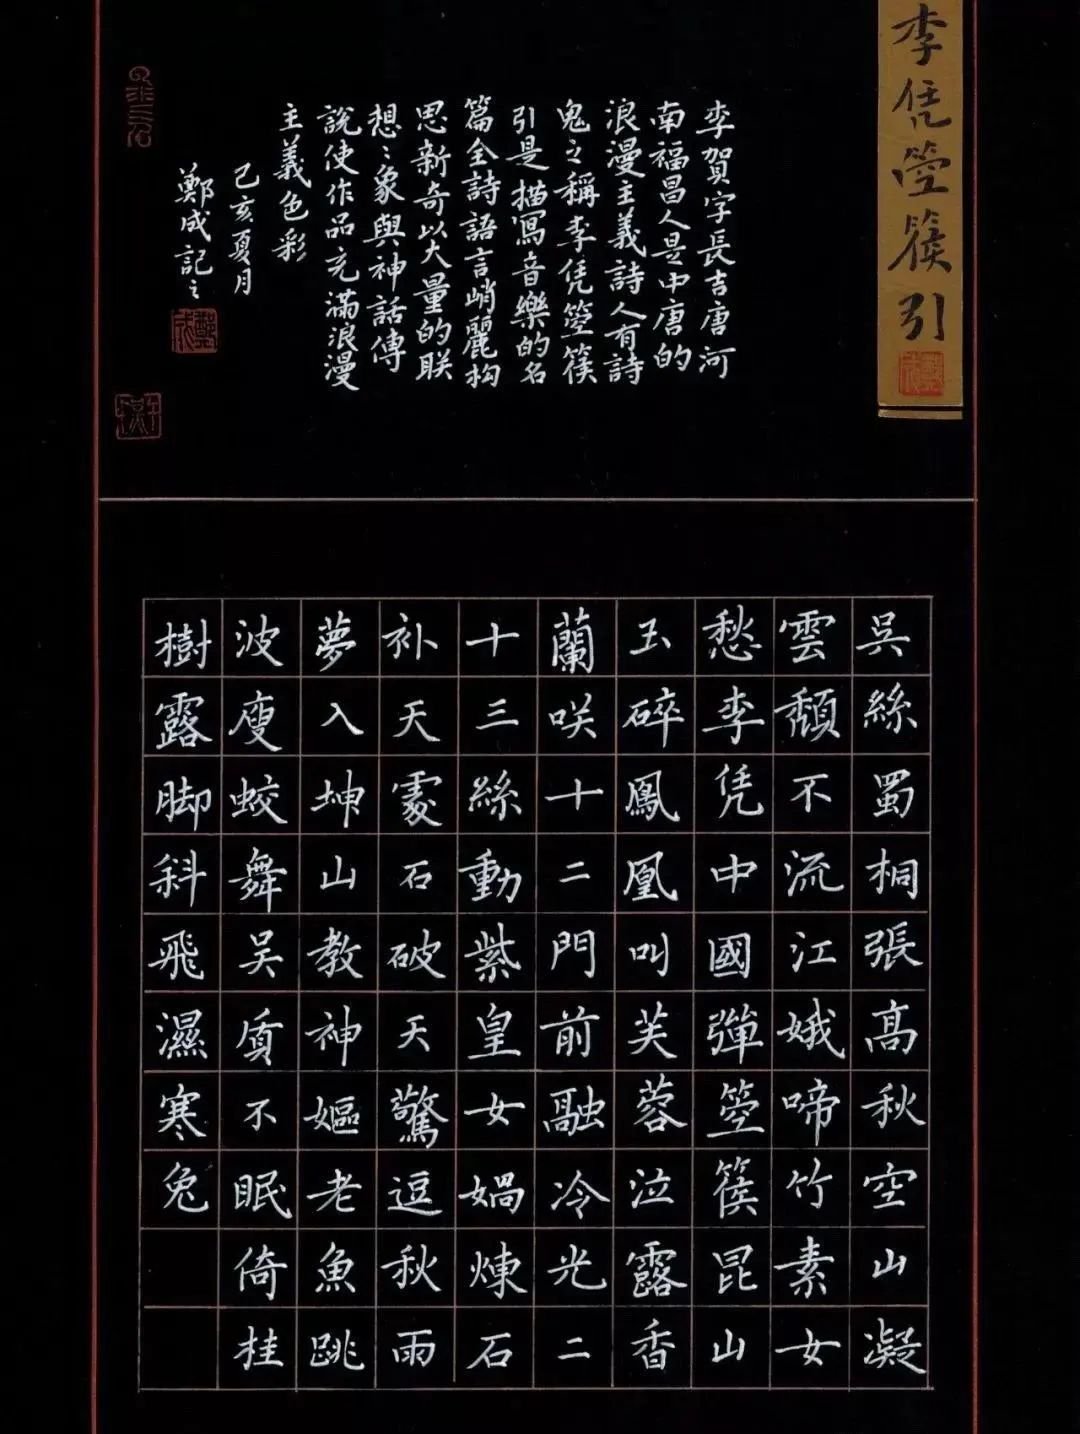 李凭箜篌引
李賀字長吉唐河
南福昌人是中唐的
浪漫主義詩人有詩
鬼之稱李凭箜篌
引是描寫音樂的名
篇全詩語言峭麗构
思新奇以大量的联
想〻象與神話傳
說使作品充滿浪漫
主義色彩
己亥夏月
鄭成記之
吳絲蜀桐張高秋空山凝
雲頹不流江娥啼竹素女
愁李凭中國彈箜篌昆山
玉碎鳳凰叫芙蓉泣露香
蘭咲十二門前融冷光二
十三絲動紫皇女媧煉石
补天處石破天驚逗秋雨
夢入坤山教神嫗老魚跳
波廋蛟舞吳質不眠倚桂
樹露脚斜飛濕寒兔